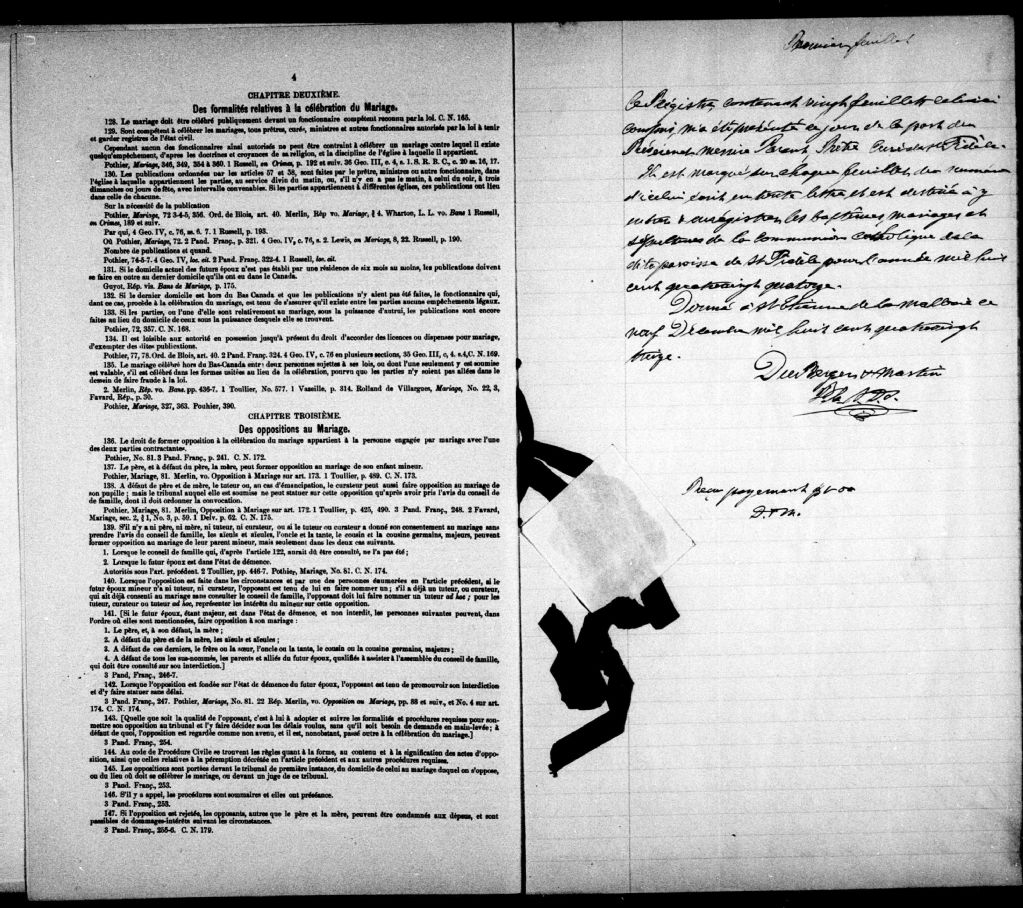 4
CHAPITRE DEUXIÈME.
Des formalités relatives à la célébration du Mariage.
128. Le mariage doit être célébré publiquement devant un fonctionnaire compétent reconnu par la loi. C. N. 165.
129. Sont compétent à célébrer les mariages, tous prêtres, curés, ministres et autres fonctionnaires autorisés par la loi à tenir
et garder registres de l'état civil.
Cependant aucun des fonctionnaires ainsi autorisés ne peut être contraint à célébrer un mariage contre lequel il existe
quelqu'empêchement, d'après les doctrines et croyances de sa religion, et la discipline de l'église à laquelle il appartient.
Pothier, Mariage, 346, 349, 354 & 360. 1 Russell, on Crimes, p. 192 et suiv. 35 Geo. III, c. 4, s. 1. S. R. B. C., c. 20 ss. 16, 17.
130. Les publications ordonnées par les articles 57 et 58, sont faites par le prêtre, ministre ou autre fonctionnaire, dans
l'église à laquelle appartiennent les parties, au service divin du matin, ou, s'il n'y en a pas le matin, à celui du soir, à trois
dimanches ou jours de fête, avec intervalle convenables. Si les parties appartiennent à différentes églises, ces publications ont lieu
dans celle de chacune.
Sur la nécessité de la publication
Pothier, Mariage, 72 3-4-5, 356. Ord. de Blois, art. 40. Merlin, Rép vo. Mariage, § 4. Wharton, L. L. vo. Bans 1 Russell,
on Crimes, 189 et suiv.
Par qui, 4 Geo. IV, c. 76, ss. 6. 7. 1 Russell, p. 193.
Où Pothier, Mariage, 72. 2 Pand. Franç., p. 321. 4 Geo. IV, c. 76, s. 2. Lewis, on Mariage, 8, 22. Russell, p. 190.
Nombre de publications et quand.
Pothier, 74-5-7. 4 Geo. IV, loc. cit. 2 Pand. Franç. 322-4. 1 Russell, loc. cit.
131. Si le domicile actuel des futurs époux n'est pas établi par une résidence de six mois au moins, les publications doivent
se faire en outre au dernier domicile qu'ils ont eu dans le Canada.
Guyot, Rép. vis. Bans de Mariage, p. 175.
132. Si le dernier domicile est hors du Bas Canada et que les publications n'y aient pas été faites, le fonctionnaire qui,
dant ce cas, procède à la célébration du mariage, est tenu de s'assurer qu'il existe entre les parties aucuns empêchements légaux.
133. Si les parties, ou l'une d'elle sont relativement au mariage, sous la puissance d'autrui, les publications sont encore
faites au lieu du domicile de ceux sous la puissance desquels elle se trouvent.
Pothier, 72, 357. C. N. 168.
134. Il est loisible aux autorité en possession jusqu'à présent du droit d'accorder des licences ou dispenses pour mariage,
d'exempter des dites publications.
Pothier, 77, 78. Ord. de Blois, art. 40. 2 Pand. Franç. 324. 4 Geo. IV, c. 76 en plusieurs sections, 35 Geo. III, c, 4. s.4, C. N. 169.
135. Le mariage célébré hors du Bas-Canada entre deux personnes sujettes à ses lois, ou dont l'une seulement y est soumise
est valable, s'il est célébré dans les formes usitées au lieu de la célébration, pourvu que les parties n'y soient pas allées dans le
dessein de faire fraude à la loi.
2. Merlin, Rép. vo. Bans. pp. 436-7. 1 Toullier, No. 577. 1 Vazeille, p. 314. Rolland de Villargues, Mariage, No. 22, 3,
Favard, Rép., p. 30.
Pothier, Mariage, 327, 363. Pouhier, 390.
CHAPITRE TROISIÈME.
Des oppositions au Mariage.
136. Le droit de former opposition à la célébration du mariage appartient à la personne engagée par mariage avec l'une
des deux parties contractantes.
Pothier, No. 81. 3 Pand. Franç., p. 241. C. N. 172.
137. Le père, et à défaut du père, la mère, peut former opposition au mariage de son enfant mineur.
Pothier, Mariage, 81. Merlin, vo. Opposition à Mariage sur art. 173. 1 Toullier, p. 489. C. N. 173.
138. A défaut de père et de mère, le tuteur ou, au cas d'émancipation, le curateur peut aussi faire opposition au mariage de
son pupille; mais le tribunal auquel elle est soumise ne peut statuer sur cette opposition qu'après avoir pris l'avis du conseil de
famille, dont il doit ordonner la convocation.
Pothier, Mariage, 81. Merlin, Opposition à Mariage sur art. 172. 1 Toullier, p. 425, 490. 3 Pand. Franç., 248. 2 Favard,
Mariage, sec. 2, § 1, No. 3, p. 59. 1 Delv. p. 62. C. N. 175.
139. S'il n'y a ni père, ni mère, ni tuteur, ni curateur, ou si le tuteur ou curateur a donné son consentement au mariage sans
prendre l'avis du conseil de famille, les aïeuls et aïeules, l'oncle et la tante, le cousin et la cousine germains, majeurs, peuvent
former opposition au mariage de leur parent mineur, mais seulement dans les deux cas suivants.
1. Lorsque le conseil de famille qui, d'après l'article 122, aurait dû être consulté, ne l'a pas été;
2. Lorsque le futur époux est dans l'état de démence.
Autorités sous l'art. précédent. 2 Toullier, pp. 446-7. Pothier, Mariage, No. 81. C. N. 174.
140. Lorsque l'opposition est faite dans les circonstances et par une des personnes énumérées en l'article précédent, si le
futur époux mineur n'a ni tuteur, ni curateur, l'opposant est tenu de lui en faire nommer un; s'il a déjà un tuteur, ou curateur,
qui ait déjà consenti au mariage sans consulter le conseil de famille, l'opposant doit lui faire nommer un tuteur ad hoc; pour les
tuteur, curateur ou tuteur ad hoc, représenter les intérêts du mineur sur cette opposition.
141. [Si le futur époux, étant majeur, est dans l'état de démence, et non interdit, les personnes suivantes peuvent, dans
l'ordre où elles sont mentionnées, faire opposition à son mariage :
1. Le père, et, à son défaut, la mère ;
2. A défaut du père et de la mère, les aïeuls et aïeules ;
3. A défaut de ces derniers, le frère ou la sœur, l'oncle ou la tante, le cousin ou la cousine germains, majeurs ;
4. A défaut de tous les sus-nommés, les parents et alliés du futur époux, qualifiés à assister à l'assemblée du conseil de famille,
qui doit être consulté sur son interdiction.]
3 Pand, Franç., 246-7.
142. Lorsque l'opposition est fondée sur l'état de démence du futur époux, l'opposant est tenu de promouvoir son interdiction
et d'y faire statuer sans délai.
3 Pand. Franç., 247. Pothier, Mariage, No. 81. 22 Rép. Merlin, vo. Opposition au Mariage, pp. 88 et suiv., et No. 4 sur art.
174. C. N. 174.
143. [Quelle que soit la qualité de l'opposant, c'est à lui à adopter et suivre les formalités et procédures requises pour sou-
mettre son opposition au tribunal et l'y faire décider sous les délais voulus, sans qu'il soit besoin de demande en main-levée; à
défaut de quoi, l'opposition est regardée comme non avenu, et il est, nonobstant, passé outre à la célébration du mariage.]
3 Pand. Franç., 254.
144. Au code de Procédure Civile se trouvent les règles quant à la forme, au contenu et à la signification des actes d'oppo-
sition, ainsi que celles relatives à la péremption décrétée en l'article précédent et aux autres procédures requises.
145. Les oppositions sont portées devant le tribunal de première instance, du domicile de celui au mariage duquel on s'oppose,
ou du lieu où doit se célébrer le mariage, ou devant un juge de ce tribunal.
3 Pand. Franç., 253.
146. S'il y a appel, les procédures sont sommaires et elles ont préséance.
3 Pand. Franç., 253.
147. Si l'opposition est rejetée, les opposants, autres que le père et la mère, peuvent être condamnés aux dépens, et sont
passibles de dommages-intérêts suivant les circonstances.
3 Pand. Franç., 255-6. C. N. 179.
Premier feuillet
Ce Régistre contenant vingt feuillets celui-ci
compris, m'a été présenté ce jour de la part du
Révérend messire Parent, Prêtre Curé de St Fidèle.
Il est marqué sur chaque feuillet du numéro
d'icelui écrit en toute lettre et est destiné à y
entrer & enrégistrer les baptêmes, mariages et
sépultures de la communion catholique de la
dite paroisse de St Fidèle pour l'année mil huit
cent quatrevingt quatorze.
Donné à St Etienne de la Malbaie ce
neuf Décembre mil huit cent quatrevingt
treize.
Desbergers & Martin
P.C.S.D.S.
Reçu payement $1.00
D. & M.